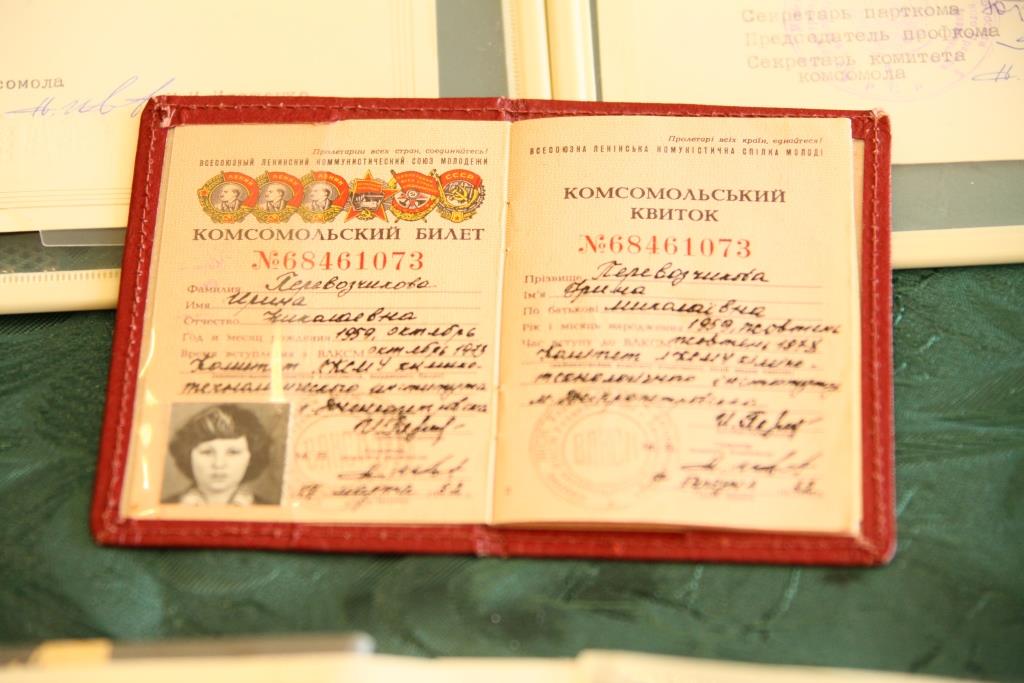 Секретарь парткома
Председатель профкома
Секретарь комитета
комсомола
сомола
Пролетарии всех стран, соединяйтесь!
ВСЕСОЮЗНЫЙ ЛЕНИНСКИЙ КОММУНИСТИЧЕСКИЙ СОЮЗ МОЛОДЕЖИ
ЛЕНИН ЛЕНИН ЛЕНИН СССР
КОМСОМОЛЬСКИЙ БИЛЕТ
№68461073
Фамилия Перевозчикова
Имя Ирина
Отчество Николаевна
Год и месяц рождения 1959, октябрь
Время вступления в ВЛКСМ октябрь 1973
Комитет ЛКСМУ химико-
технологического института
г. Днепропетровска
И. Перев
М. П.
82
Пролетарі всіх країн, єднайтеся!
ВСЕСОЮЗНА ЛЕНІНСЬКА КОМУНІСТИЧНА СПІЛКА МОЛОДІ
КОМСОМОЛЬСЬКИЙ
КВИТОК
№68461073
Прізвище Перевозчикова
Ім'я Ірина
По батькові Миколаївна
Рік і місяць народження 1959, жовтень
Час вступу до ВЛКСМ жовтень 1973
Комітет ЛКСМУ хіміко-
технологічного інституту
м. Дніпропетровська
И. Перев
ВЛКСМ
82